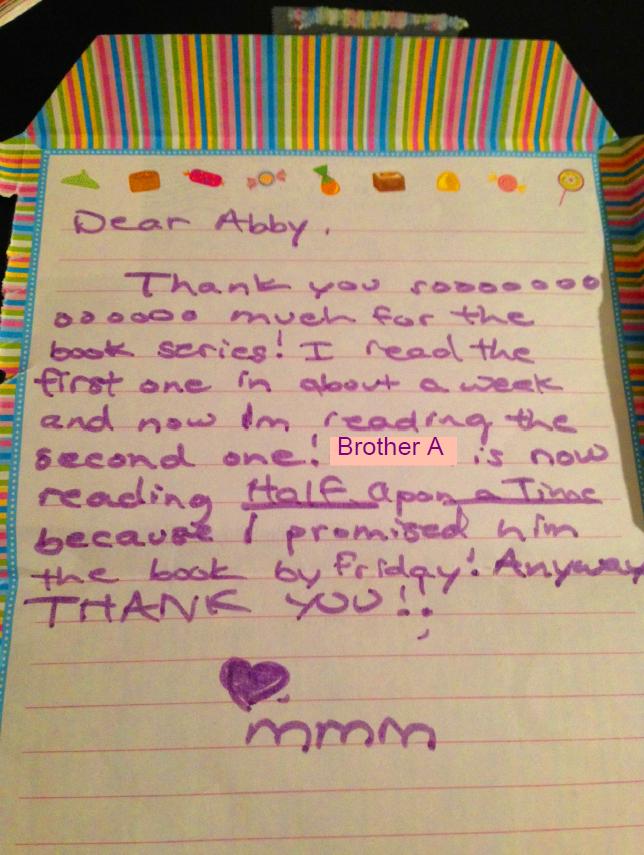 Dear Abby,
Thank you soooooooo
oooooo much for the
book series! I read the
first one in about a week
and now Im reading the
second one! Brother A is now
reading Half Upon a Time
because I promised him
the book by Friday! Anyway
THANK YOU!!
mmm